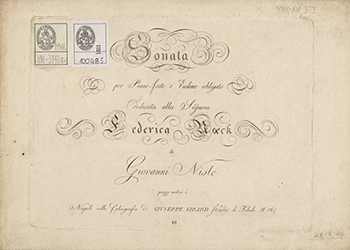 Sonata
per Piano-forte e Violino obligato
dedicata alla Signora
Federica Rœck
di
Giovanni Nisle
Napoli nella Calcografia di GIUSEPPE GIRARD Strada di Toledo N. 165
100485